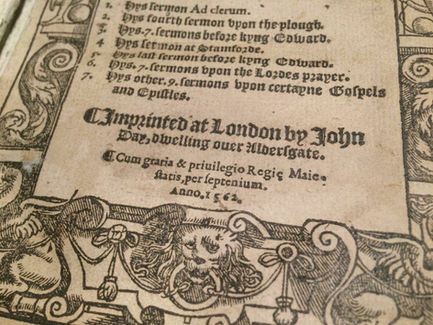 1. Hys sermon Ad clerum.
2. Hys fourth sermon vpon the plough.
3. Hys .7. sermons before kyng Edward.
4. Hys sermon at Stamforde.
5. Hys last sermon before kyng Edward.
6. Hys .7. sermons vpon the Lordes prayer.
7. Hys other .9. sermons vpon certayne Gospels
and Epistles.
¶ Imprinted at London by John
Day, dwelling ouer Aldersgate.
¶ Cum gratia & priuilegio Regię Maie-
statis, per septenium.
Anno. 1562.